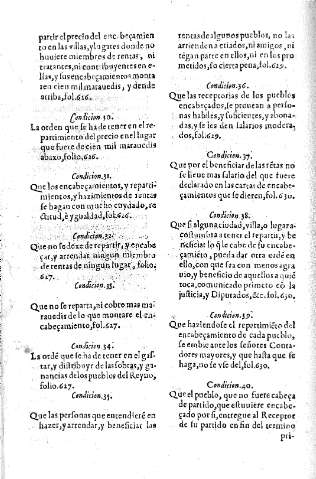 partir el precio del encabeçamien
to en las villas, y lugares donde no
huuiere miembros de rentas, ni
tratantes, ni contribuyentes en e-
llas, y sus encabeçamientos monta
ren cien mil marauedis, y dende
arriba, fol.626.
Condicion.30.
La orden que se ha de tener en el re-
partimiento del precio en el lugar
que fuere de cien mil marauedis
abaxo, folio.626.
Condicion.31.
Que los encabeçamientos, y reparti-
mientos, y hazimientos de rentas
se hagan con mucho cuydado, re
ctitud, è ygualdad, fol.626.
Condicion.32.
Que no se dexe de repartir, y encabe
çar, y arrendar ningun miembro
de rentas de ningun lugar, folio.
627.
Condicion.33.
Que no se reparta, ni cobre mas ma-
rauedis de lo que montare el en-
cabeçamiento, fol.627.
Condicion.34.
La ordē que se ha de tener en el gas-
tar, y distribuyr de las sobras, y ga-
nancias de los pueblos del Reyno,
folio.627.
Condicion.35.
Que las personas que entendierē en
hazer, y arrendar, y beneficiar las
rentas de algunos pueblos, no las
arrienden a criados, ni amigos, ni
tēgan parte en ellos, ni en los pro
metidos, so cierta pena, fol.629.
Condicion.36.
Que las receptorias de los pueblos
encabeçados, se prouean a perso-
nas habiles, y suficientes, y abona-
das, y se les den salarios modera-
dos, fol.629.
Condicion.37.
Que por el beneficiar de las rētas no
se lieue mas salario del que fuere
declarado en las cartas de encabe-
çamientos que se dieren, fol.630.
Condicion.38.
Que si alguna ciudad, villa, o lugar a-
costumbra a tener el repartir, y be
neficiar lo q̄ le cabe de su encabeça-
miento, pueda dar otra ordē en
ello, con que sea con menos agra
uio, y beneficio de aquellos a quiē
toca, comunicado primero cō la
justicia, y Diputados, &c. fol.630.
Condicion.39.
Que haziendose el repartimiēto del
encabeçamiento de cada pueblo,
se embie ante los señores Conta-
dores mayores, y que hasta que se
haga, no se vse del, fol.630.
Condicion.40.
Que el pueblo, que no fuere cabeça
de partido, que estuuiere encabe-
çado por si, entregue al Receptor
de su partido en fin del termino
pri-